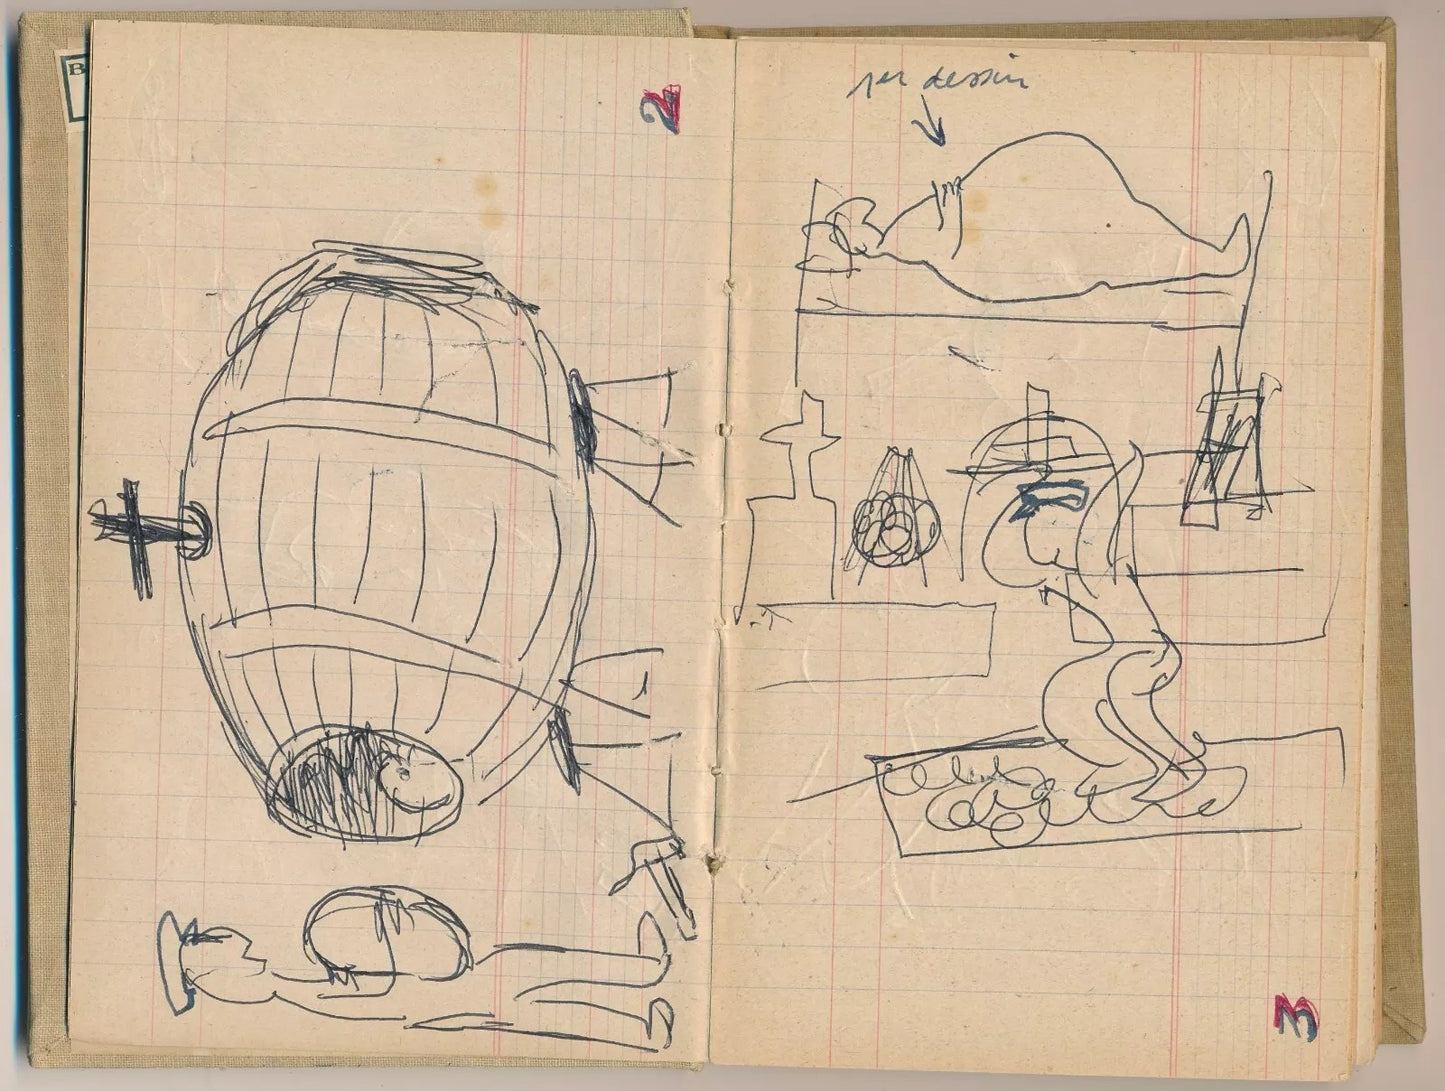 B
2
1er dessin
3